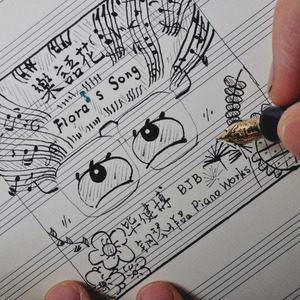 樂語花
Flora's Song
建博 BJB
Piano Works